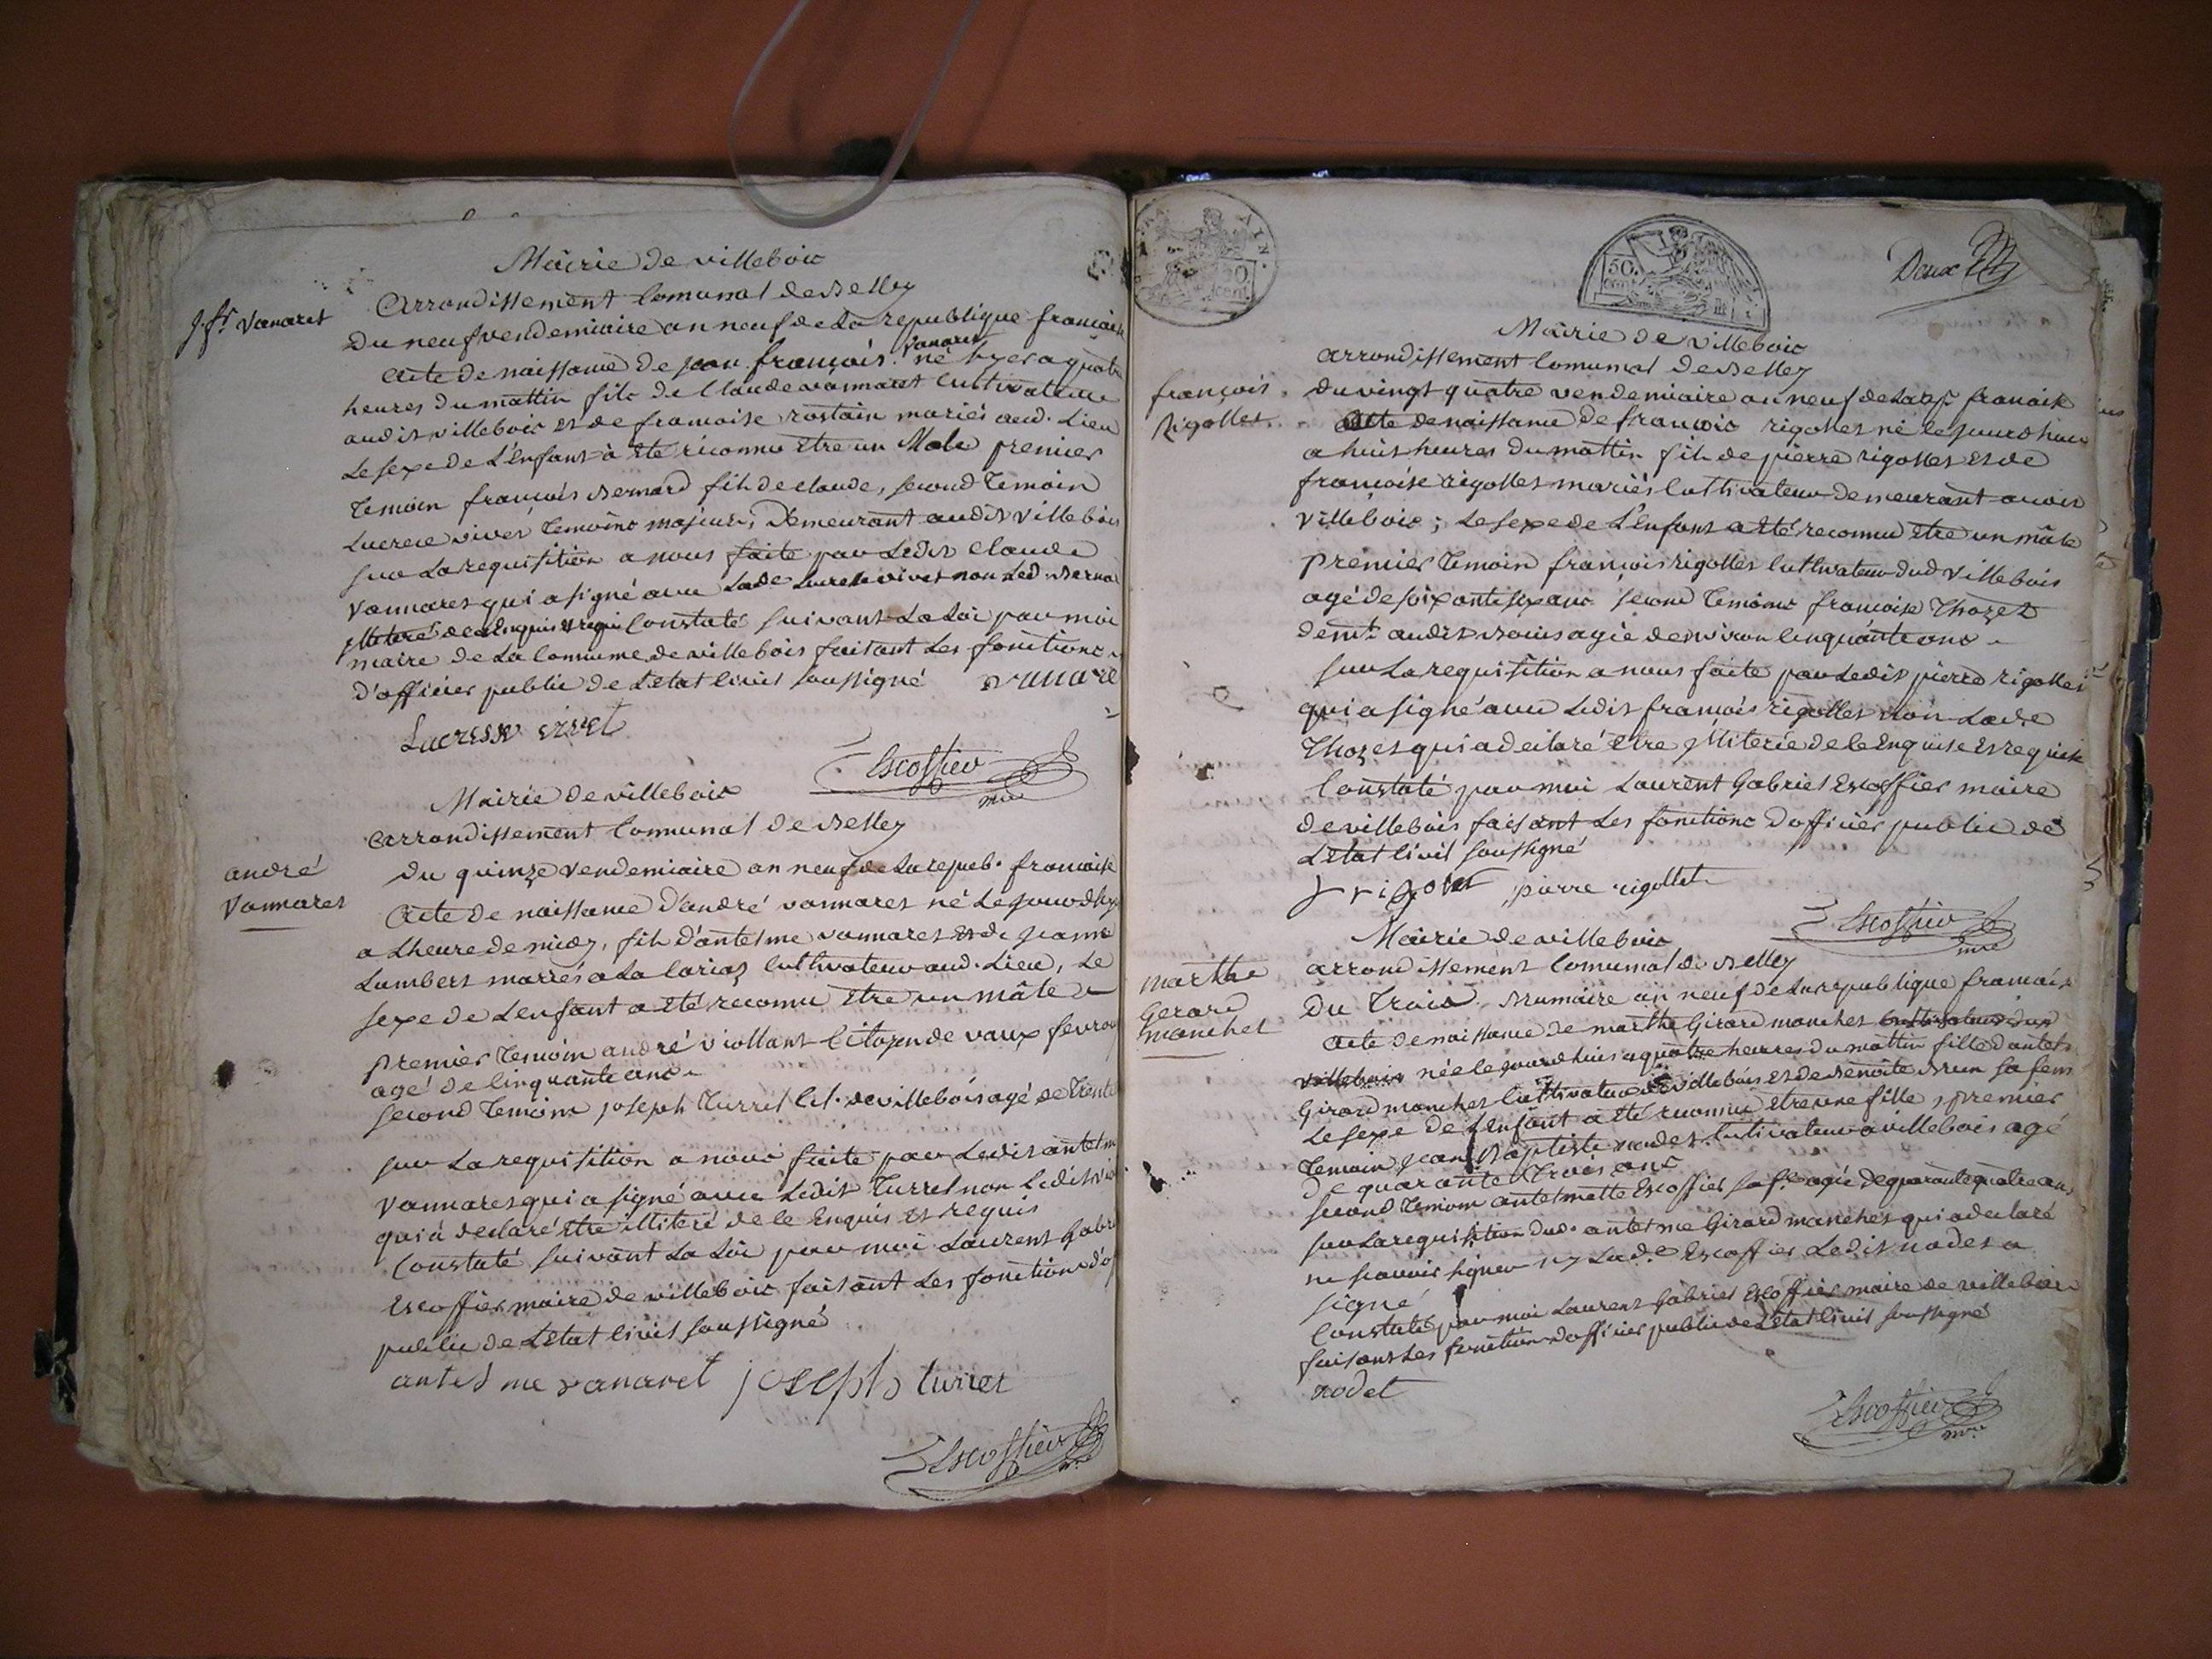 Mairie de villebois
Arrondissement Comunal de Belley
jfs. Vanaret
Du neuf vendemiaire an neuf de La republique francaise
Vanaret
Acte de naissance de jean françois né hyer a quatre
heures du mattin fils de Claude vannaret Cultivateur
audit villebois et de francoise rostain mariés aud. Lieu
Le sexe de L'Enfant à été reconnu être un Male premier
temoin françois Bernard fils de claude, second temoin
Lucrece vivet temoins majeurs, Demeurant audit villebois
sur La requisition a nous faite par Ledit claude
vannaret qui a signé avec Lade Lucrece vivet non Led. Berna
illiteré de ce Enquis et requi Constaté suivant La Loi par moi
maire de La Commune de villebois faisant Les fonctions
d'officier public de L'etat Civil soussigné vanare
Lucresse vivet
Escoffier
mre
Mairie de villebois
Arrondissement Comunal de Belley
andré
Vannaret
du quinze vendemiaire an neuf de La repub. francaise
Acte de naissance d'andré vannaret né Le jourdhy
a Lheure de midy, fils d'antelme vannaret et de jeanne
Lambert mariés a La Cariaz Cultivateur aud. Lieu, Le
sexe de Lenfant a été reconnu être un mâle
premier temoin andré viollant Citoyen de vaux fevroy
agé de Cinquante ans
second temoin joseph turrel Cit. de villebois agé de trente
sur La requisition a nous faite par Ledit antelm
vannaret qui a signé avec Ledit turrel non Ledit vio
qui à declaré être illiteré de ce Enquis et requis
Constaté suivant La Loi par moi Laurent Gabri
Escoffier maire de villebois faisant Les fonctions d'of
public de L'etat Civil soussigné
antelme vanaret joseph turrel
Escoffier
mre
50
cent.
50.
cent.
Deux
Mairie de villebois
arrondissement Comunal de Belley
françois
Rigollet
du vingt quatre vendemiaire an neuf de La rep francaise
Acte de naissance de francois rigollet né le jourdhui
a huit heures du mattin fils de pierre rigollet et de
françoise rigollet mariés Cultivateur demeurant a bois
villebois; Le sexe de L'Enfant a été reconnu être un mâle
premier temoin françois rigollet Cultivateur dud villebois
agé de soixante six ans second temoins francoise Thozet
demt. audit Bouis agée denviron Cinquante ans
sur La requisition a nous faite par Ledit pierre rigollet
qui a signé avec Ledit francois rigollet non Lade
Thozet qui a declaré être illiterée de ce Enquise et requise
Constaté par moi Laurent Gabriel Escoffier maire
de villebois faisant Les fonctions d'officier public de
L'etat Civil soussigné
f rigolet pierre rigollet
Escoffier
mre
Mairie de villebois
arrondissement Comunal de Belley
marthe
Gerard
manchet
Du trois Brumaire an neuf de La republique francaise
Acte de naissance de marthe Girard manchet Cultivateur dud
villebois née le jourdhui a quatre heures du mattin fille dantel
Girard manchet Cultivateur de villebois et de Benoite Brun sa fem
Le sexe de L'Enfant a été reconnu etre une fille, premier
temoin jean Baptiste nodet Cultivateur a villebois agé
de quarante trois ans
second temoin antelmette Escoffier sa fe. agée de quarante quatre ans
sur La requisition dud. antelme Girard manchet qui a declaré
ne scavoir signer ny Lade. Escoffier Ledit nodet a
signé
Constaté par moi Laurent Gabriel Escoffier maire de villebois
faisant Les fonction d'officier public de L'etat Civil soussigné
nodet
Escoffier
mre